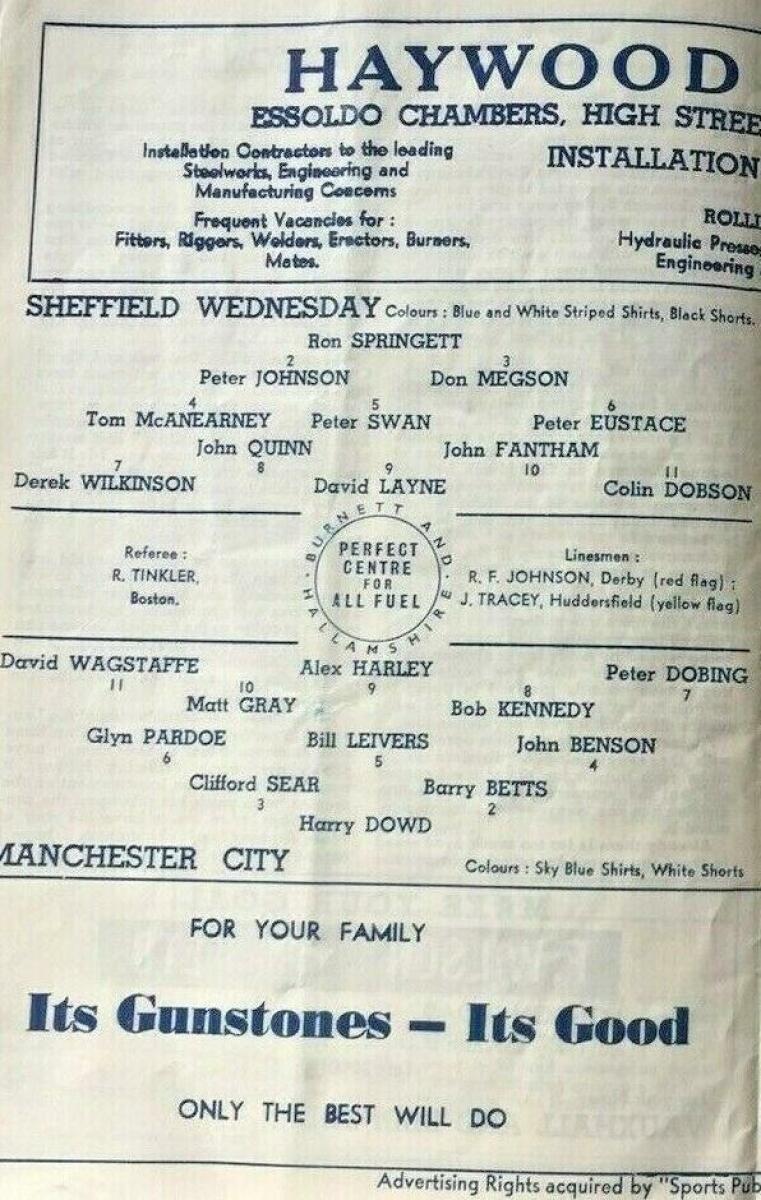 HAYWOOD
ESSOLDO CHAMBERS, HIGH STREE
Installation Contractors to the leading
Steelworks, Engineering and
Manufacturing Concerns
INSTALLATION
Frequent Vacancies for :
Fitters, Riggers, Welders, Erectors, Burners,
Mates.
ROLLI
Hydraulic Presse
Engineering
SHEFFIELD WEDNESDAY Colours : Blue and White Striped Shirts, Black Shorts.
Ron SPRINGETT
2 3
Peter JOHNSON Don MEGSON
4 5 6
Tom McANEARNEY Peter SWAN Peter EUSTACE
John QUINN John FANTHAM
7 8 9 10 11
Derek WILKINSON David LAYNE Colin DOBSON
Referee :
R. TINKLER,
Boston.
BURNETT AND HALLAMSHIRE
PERFECT
CENTRE
FOR
ALL FUEL
Linesmen :
R. F. JOHNSON, Derby (red flag) ;
J. TRACEY, Huddersfield (yellow flag)
David WAGSTAFFE Alex HARLEY Peter DOBING
11 10 9 8 7
Matt GRAY Bob KENNEDY
Glyn PARDOE Bill LEIVERS John BENSON
6 5 4
Clifford SEAR Barry BETTS
3 2
Harry DOWD
MANCHESTER CITY Colours : Sky Blue Shirts, White Shorts
FOR YOUR FAMILY
Its Gunstones — Its Good
ONLY THE BEST WILL DO
Advertising Rights acquired by "Sports Pub